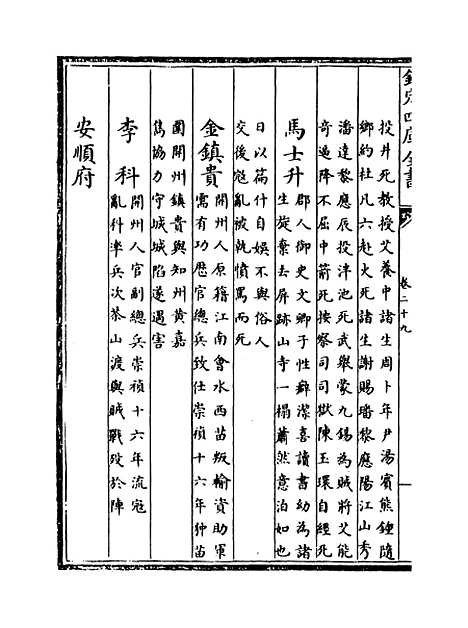 欽定四庫全書
卷二十九
投井死教授艾養中諸生周卜年尹湯賓熊鍾隨
鄉約杜凡六赴火死諸生謝賜璠黎應陽江山秀
潘達黎應辰投泮池死武舉蒙九錫為賊將艾能
奇逼降不屈中箭死按察司司獄陳玉環自經死
馬士升
郡人御史文卿子性癖潔喜讀書幼為諸
生旋棄去屏跡山寺一榻蕭然意泊如也
日以篇什自娛不與俗人
交後寇亂被執憤罵而死
金鎮貴
開州人原籍江南會水西苗叛輸資助軍
需有功歷官總兵致仕崇禎十六年狆苗
圍開州鎮貴與知州黃嘉
雋協力守城城陷遂遇害
李科
開州人官副總兵崇禎十六年流寇
亂科率兵次茶山渡與賊戰歿於陣
安順府